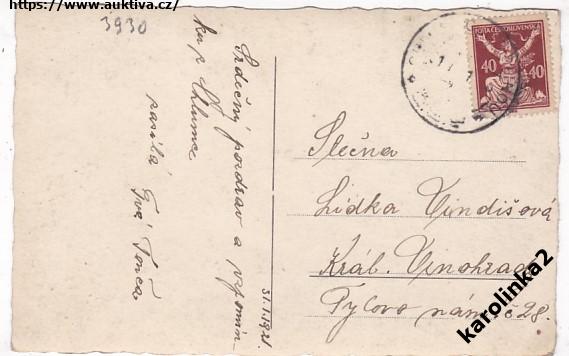 https://www.auktiva.cz/
3930
Srdečný pozdrav a vzpomín-
ku z Chlumce
zasílá Tvá Tonča
31.I.1921.
POŠTA ČESKOSLOVENSKÁ
40 40
Slečna
Lidka Vindišová
Král. Vinohrady
Tylovo nám. č 28.
karolinka2